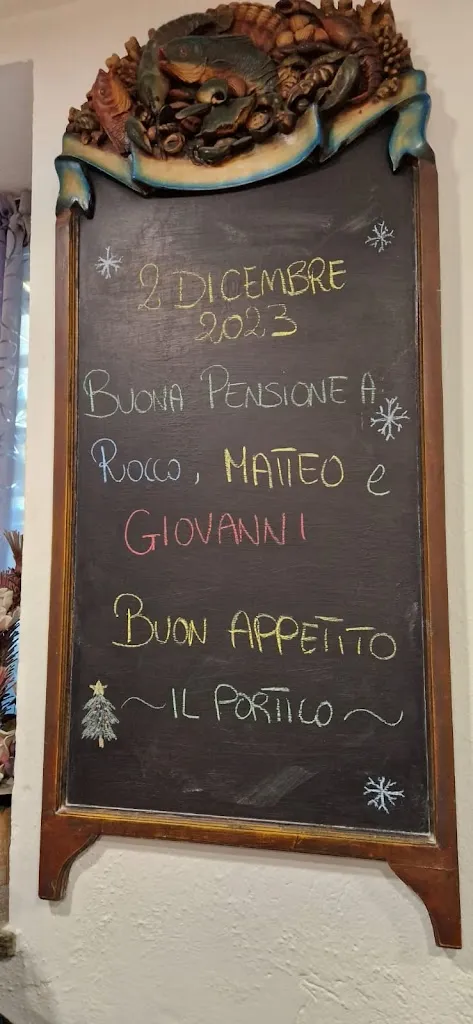 2 DICEMBRE
2023
BUONA PENSIONE A
ROCCO, MATTEO e
GIOVANNI
BUON APPETITO
~ IL PORTICO ~